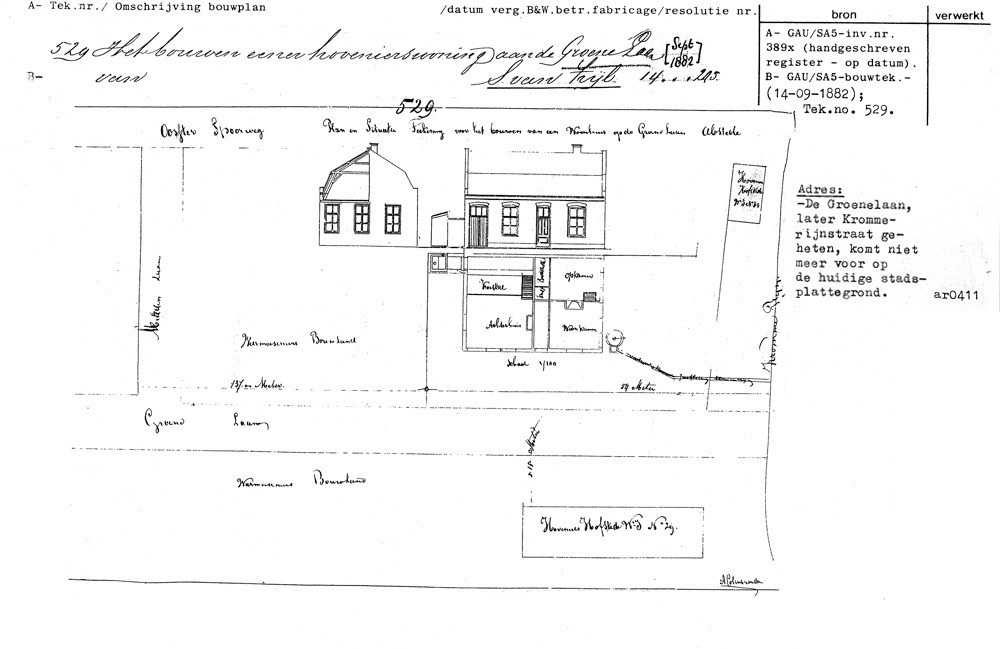 A- Tek.nr./ Omschrijving bouwplan
/datum verg.B&W.betr.fabricage/resolutie nr.
bron
verwerkt
529 Het bouwen eener hovenierswoning aan de Groene Laan [Sept 1882]
B- van
S. van Trijl. 14...205.
A- GAU/SA5-inv.nr.
389x (handgeschreven
register - op datum).
B- GAU/SA5-bouwtek.-
(14-09-1882);
Tek.no. 529.
529.
Ooster Spoorweg
Plan en Situatie Teekening voor het bouwen van een Woonhuis op de Groene Laan Abstede
Hoveniers
Hofstede
Adres:
-De Groenelaan,
later Kromme-
rijnstraat ge-
heten, komt niet
meer voor op
de huidige stads-
plattegrond.
ar0411
Opkamer
Achterhuis
Woonkamer
Schaal 1/100
Laan
Kromme Rijn
Warmoeseniers Bouwland
137 Meter
59 Meter
Groene Laan
Meter
Warmoeseniers Bouwland
Hoveniers Hofstede Wijk No 29.